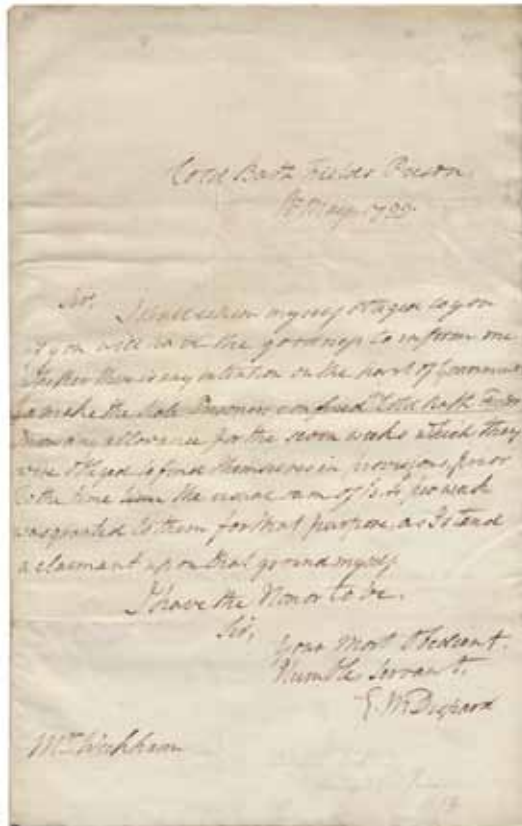 Cold Bath Fields Prison
May 1799.
Sir,
I shall esteem myself obliged to you
if you will have the goodness to inform me
Whether there is any intention on the part of Government
to make the State Prisoners confined Cold Bath Fields
Prison any allowance for the seven weeks which they
were obliged to find themselves in provisions, prior
to the time when the usual sum of pr week
was granted to them for that purpose, as I stand
a claimant upon that ground myself
I have the Honor to be.
Sir,
Your Most Obedient.
Humble Servant.
E. M Despard
Mr. Wickham